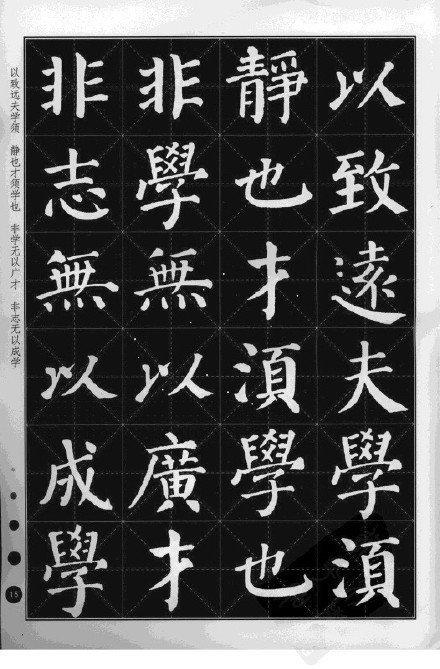 以致遠夫學須
靜也才須學也
非學無以廣才
非志無以成學
以致远夫学须 静也才须学也 非学无以广才 非志无以成学
15